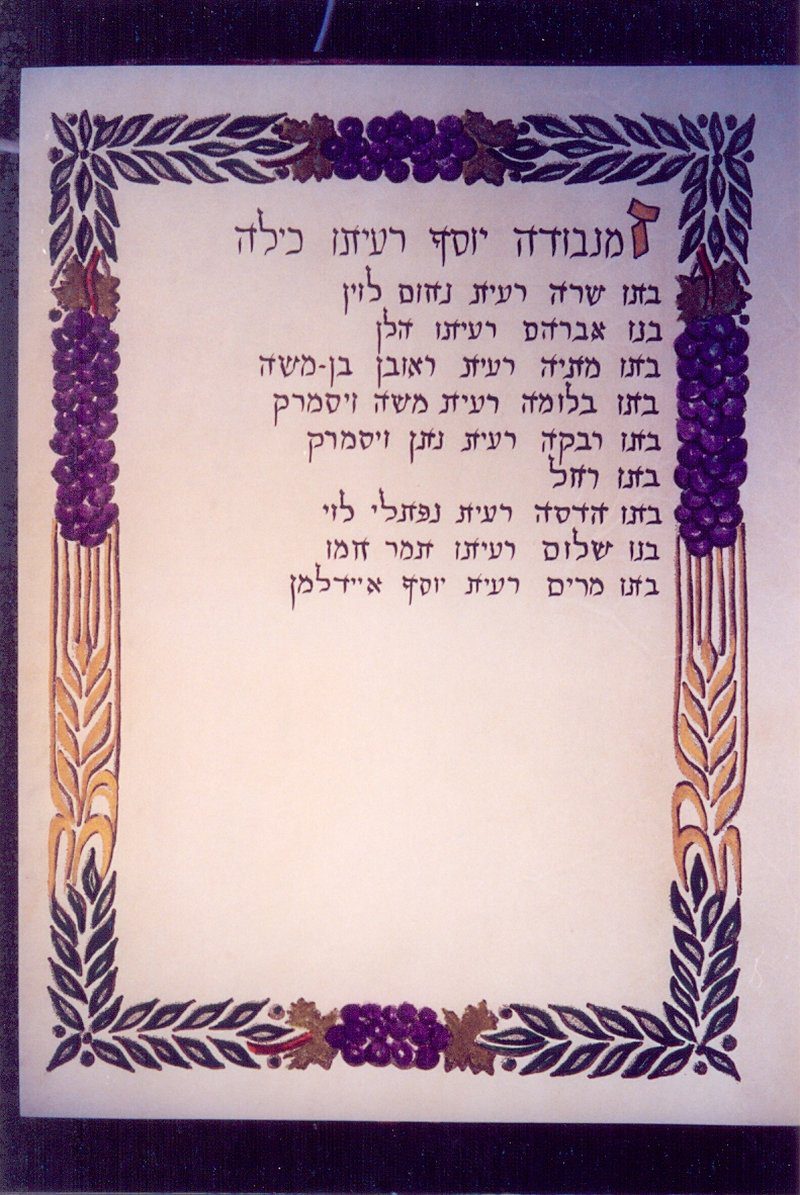 זמנבודה יוסף רעיתו כילה
בתו שרה רעית נחום לוין
בנו אברהם רעיתו הלן
בתו מתיה רעית ראובן בן-משה
בתו בלומה רעית משה ויסמרק
בתו רבקה רעית נתן ויסמרק
בתו רחל
בתו הדסה רעית נפתלי לוי
בנו שלום רעיתו תמר חמו
בתו מרים רעית יוסף איידלמן